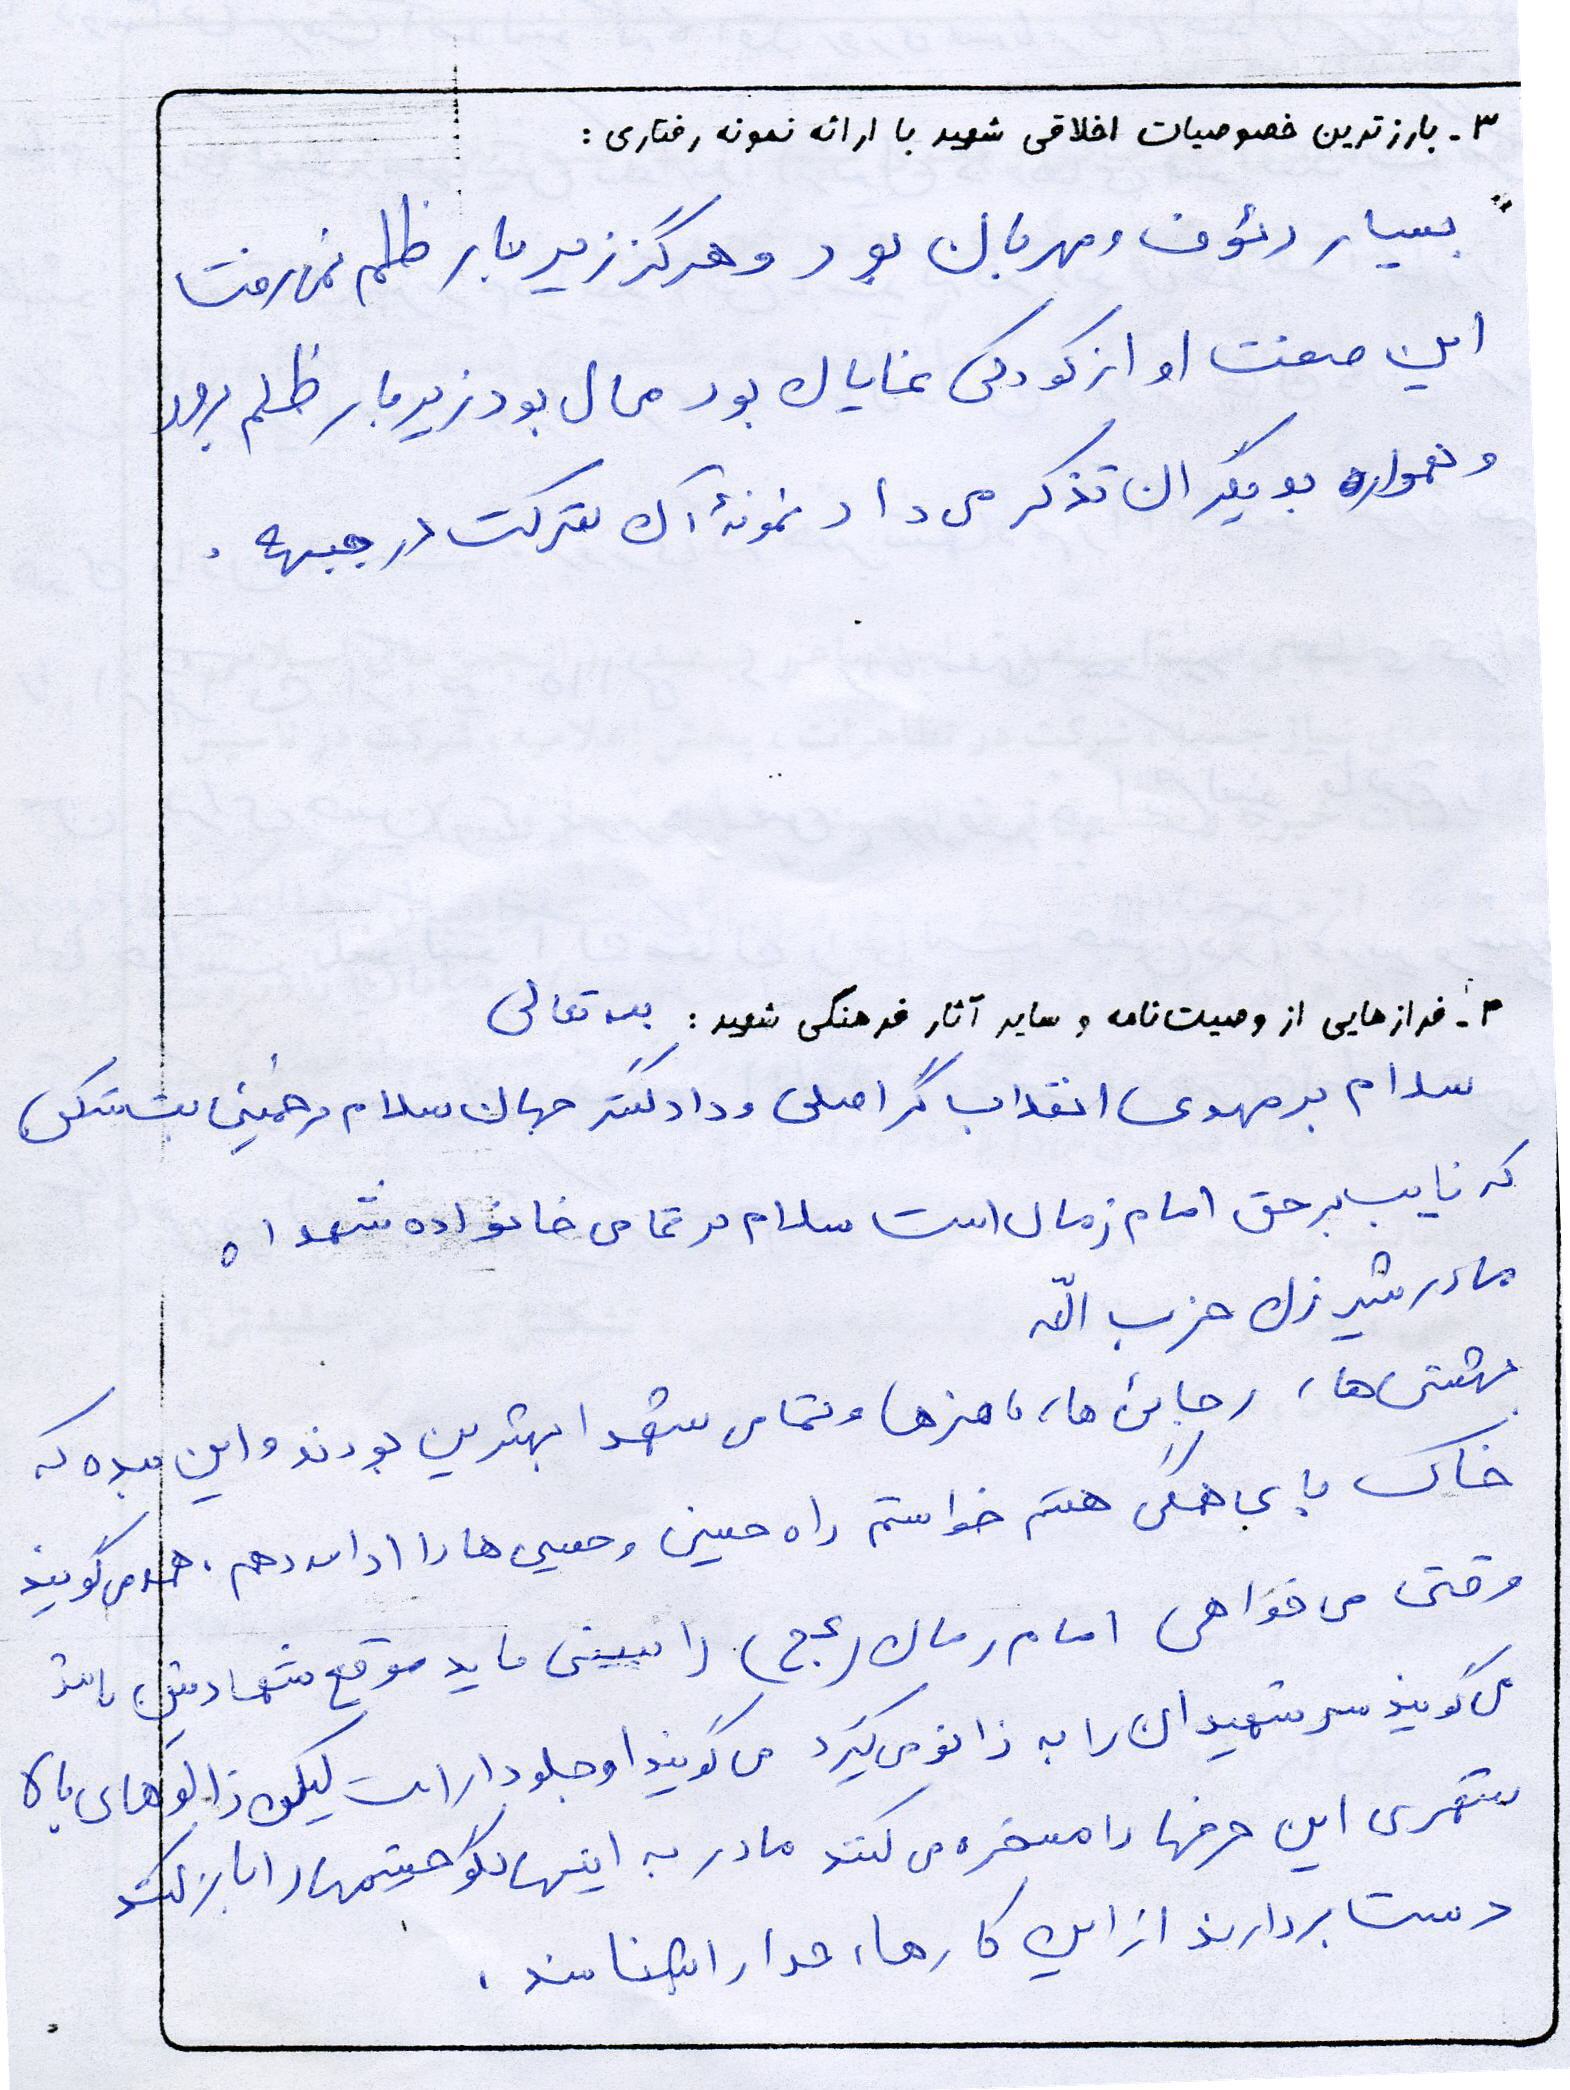 ۳ـ بارزترین خصوصیات اخلاقی شهید با ارائه نمونه رفتاری :
بسیار رئوف و مهربان بود و هرگز زیر بار ظلم نمی‌رفت
این صفت او از کودکی نمایان بود محال بود زیر بار ظلم برود
و همواره بدیگران تذکر می داد نمونهٔ آن شرکت در جبهه .
۴ـ فرازهایی از وصیت‌نامه و سایر آثار فرهنگی شهید : بسه تعالی
سلام بر مهدی انقلاب گر اصلی و دادگستر جهان سلام بر خمینی بت شکن
که نایب بر حق امام زمان است سلام بر تمامی خانواده شهدا ه
مادر شیر زن حزب اللّه
بهشتی ها، رجائی ها، باهنرها و تمامی شهدا بهترین بودند و این بنده که
خاک پای همگی هستم خواستم راه حسین و حسینی ها را ادامه دهم . همه می گویند
وقتی می خواهی امام زمان (عج) را ببینی باید موقع شهادتت باشد
می گویند سر شهیدان را به زانو می گیرد می گویند او جلودار است لیکن زالوهای بالا
شهری این حرفها را مسخره می کنند مادر به اینها بگو چشمها را باز کنند
دست بردارند از این کارها، خدا را بشناسند .